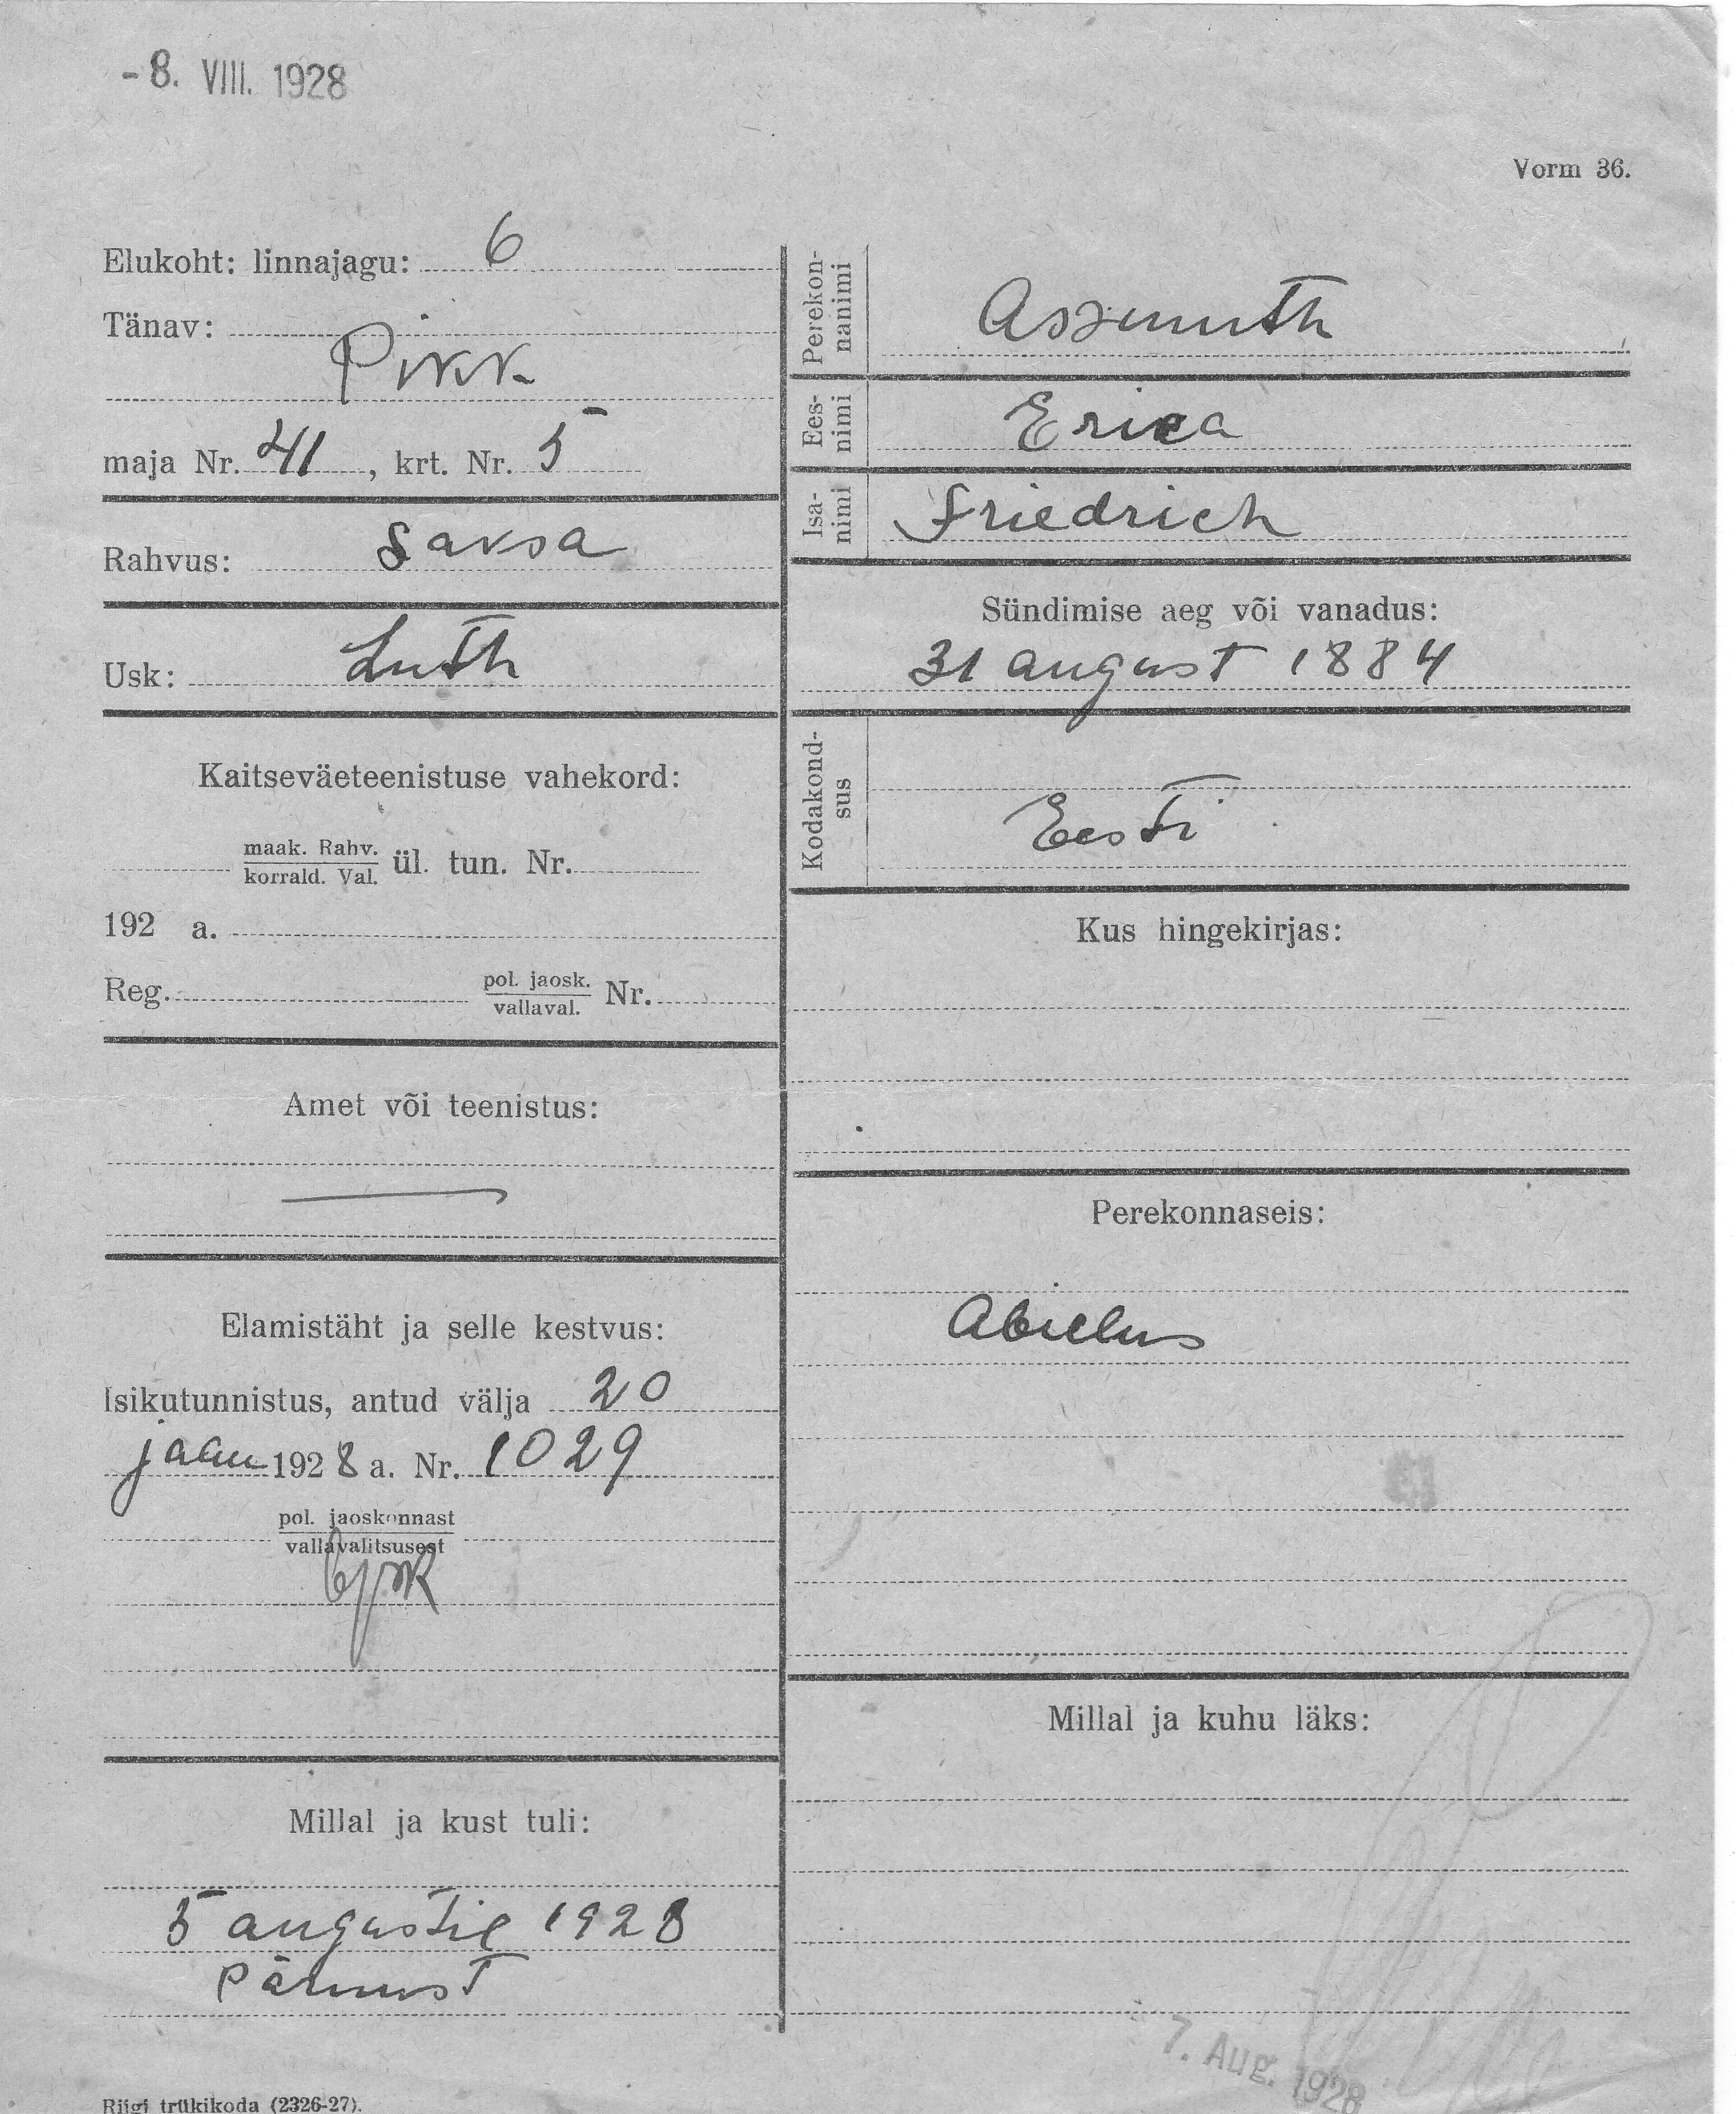 -8. VIII. 1928
Vorm 36.
Elukoht: linnajagu: 6
Tänav:
Pikk
maja Nr. 41, krt. Nr. 5
Rahvus: Saksa
Usk: Luth
Kaitseväeteenistuse vahekord:
maak. Rahv.
korrald. Val.
ül. tun. Nr.
192 a.
Reg. pol. jaosk. Nr.
vallaval.
Amet või teenistus:
Elamistäht ja selle kestvus:
Isikutunnistus, antud välja 20
jaan 1928 a. Nr. 1029
pol. jaoskonnast
vallavalitsusest
Millal ja kust tuli:
5 augustil 1928
Pärnust
Riigi trükikoda (2326-27).
Perekon-
nanimi
Assmuth
Ees-
nimi
Erica
Isa-
nimi
Friedrich
Sündimise aeg või vanadus:
31 august 1884
Kodakond-
sus
Eesti
Kus hingekirjas:
Perekonnaseis:
Abielus
Millal ja kuhu läks:
7. Aug. 1928